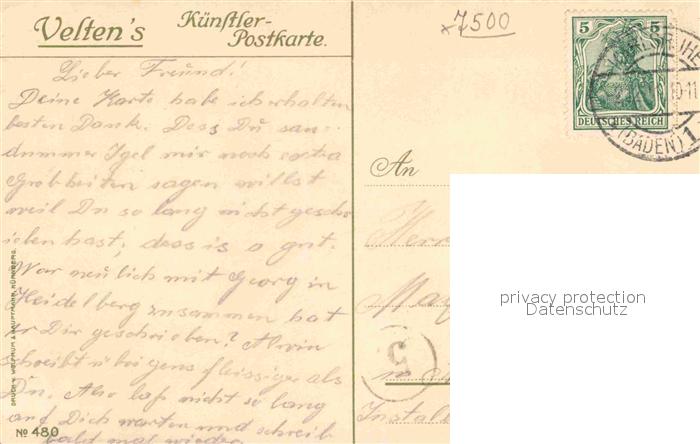 Velten's Künstler-
Postkarte.
x7500
5 5
DEUTSCHES REICH
(BADEN) 1
10-11
Lieber Freund!
Deine Karte habe ich erhalten
besten Dank. Dass Du sau-
dummer Igel mir noch extra
Grobheiten sagen willst
weil Du so lang nicht geschr
ieben hast, dess is a gut.
War neulich mit Georg in
Heidelberg zusammen hat
er Dir geschrieben? Alwin
schreibt übrigens fleissiger als
Du. Also laß nicht so lang
auf Dich warten und schreib
bald mal wieder
An
Herr
5
in
Instal
privacy protection
Datenschutz
No 480